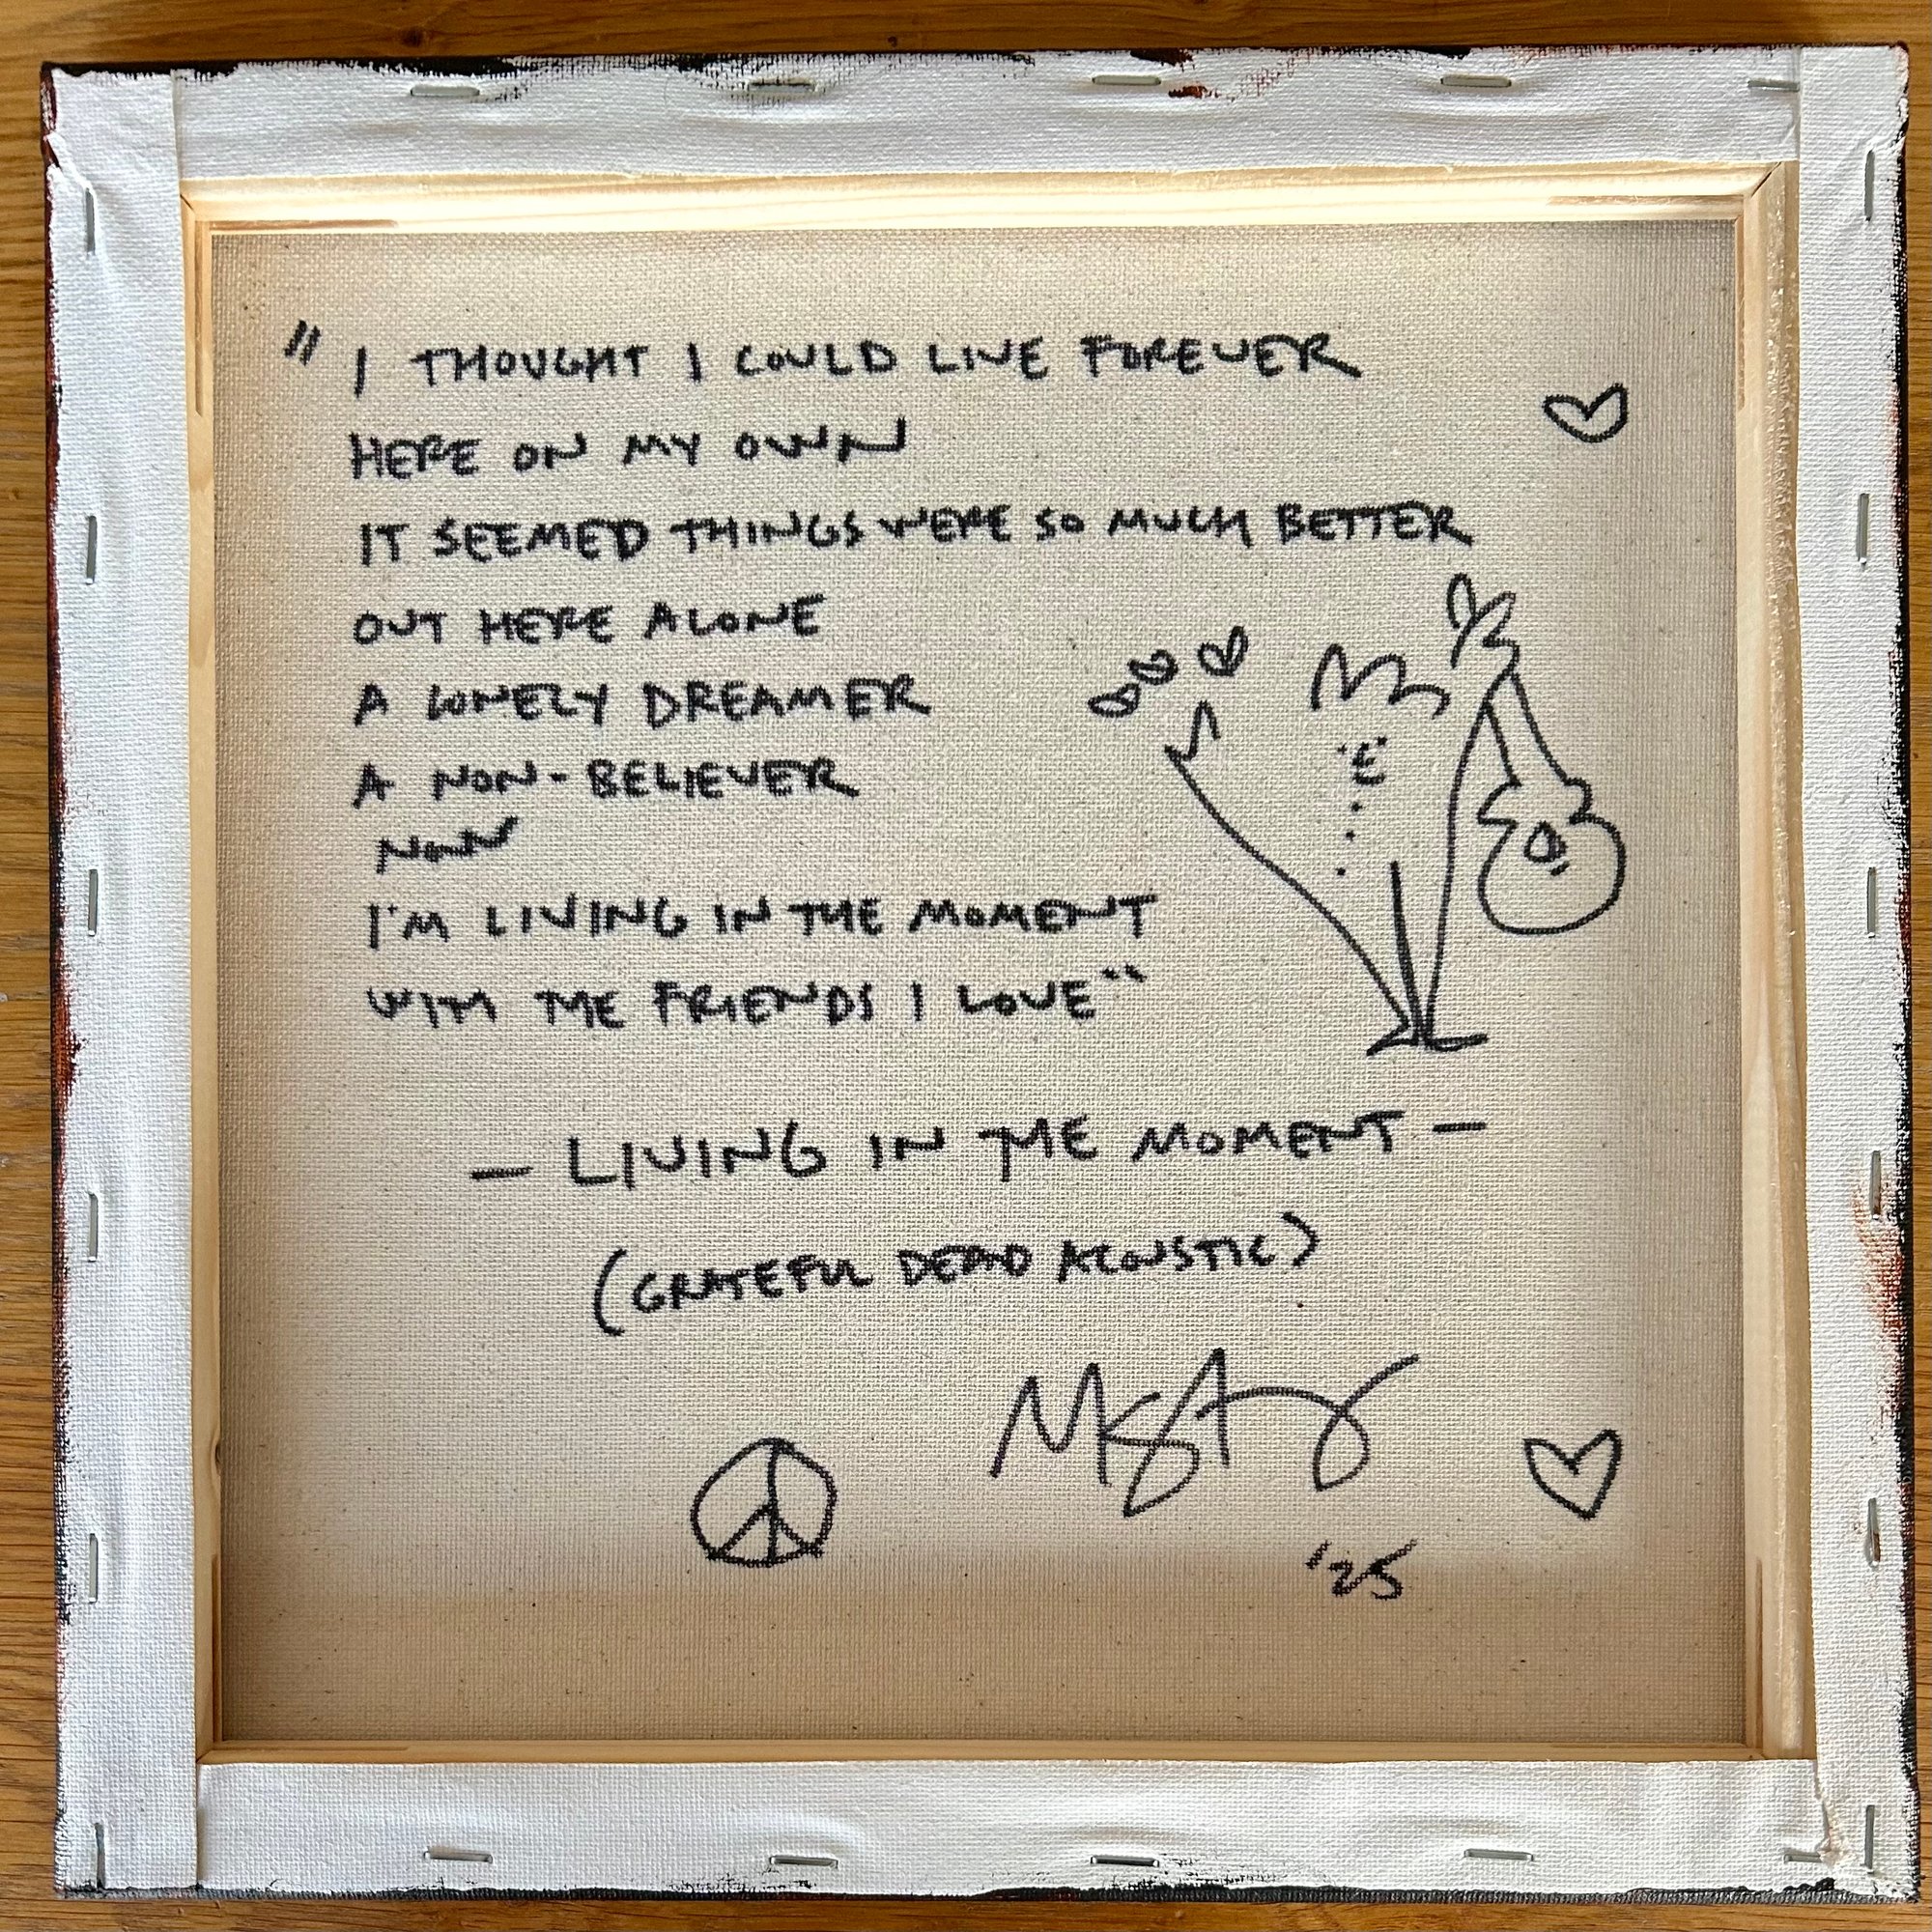 "I THOUGHT I COULD LIVE FOREVER
HERE ON MY OWN
IT SEEMED THINGS WERE SO MUCH BETTER
OUT HERE ALONE
A LONELY DREAMER
A NON-BELIEVER
NOW
I'M LIVING IN THE MOMENT
WITH THE FRIENDS I LOVE"
— LIVING IN THE MOMENT —
(GRATEFUL DEAD ACOUSTIC)
'25